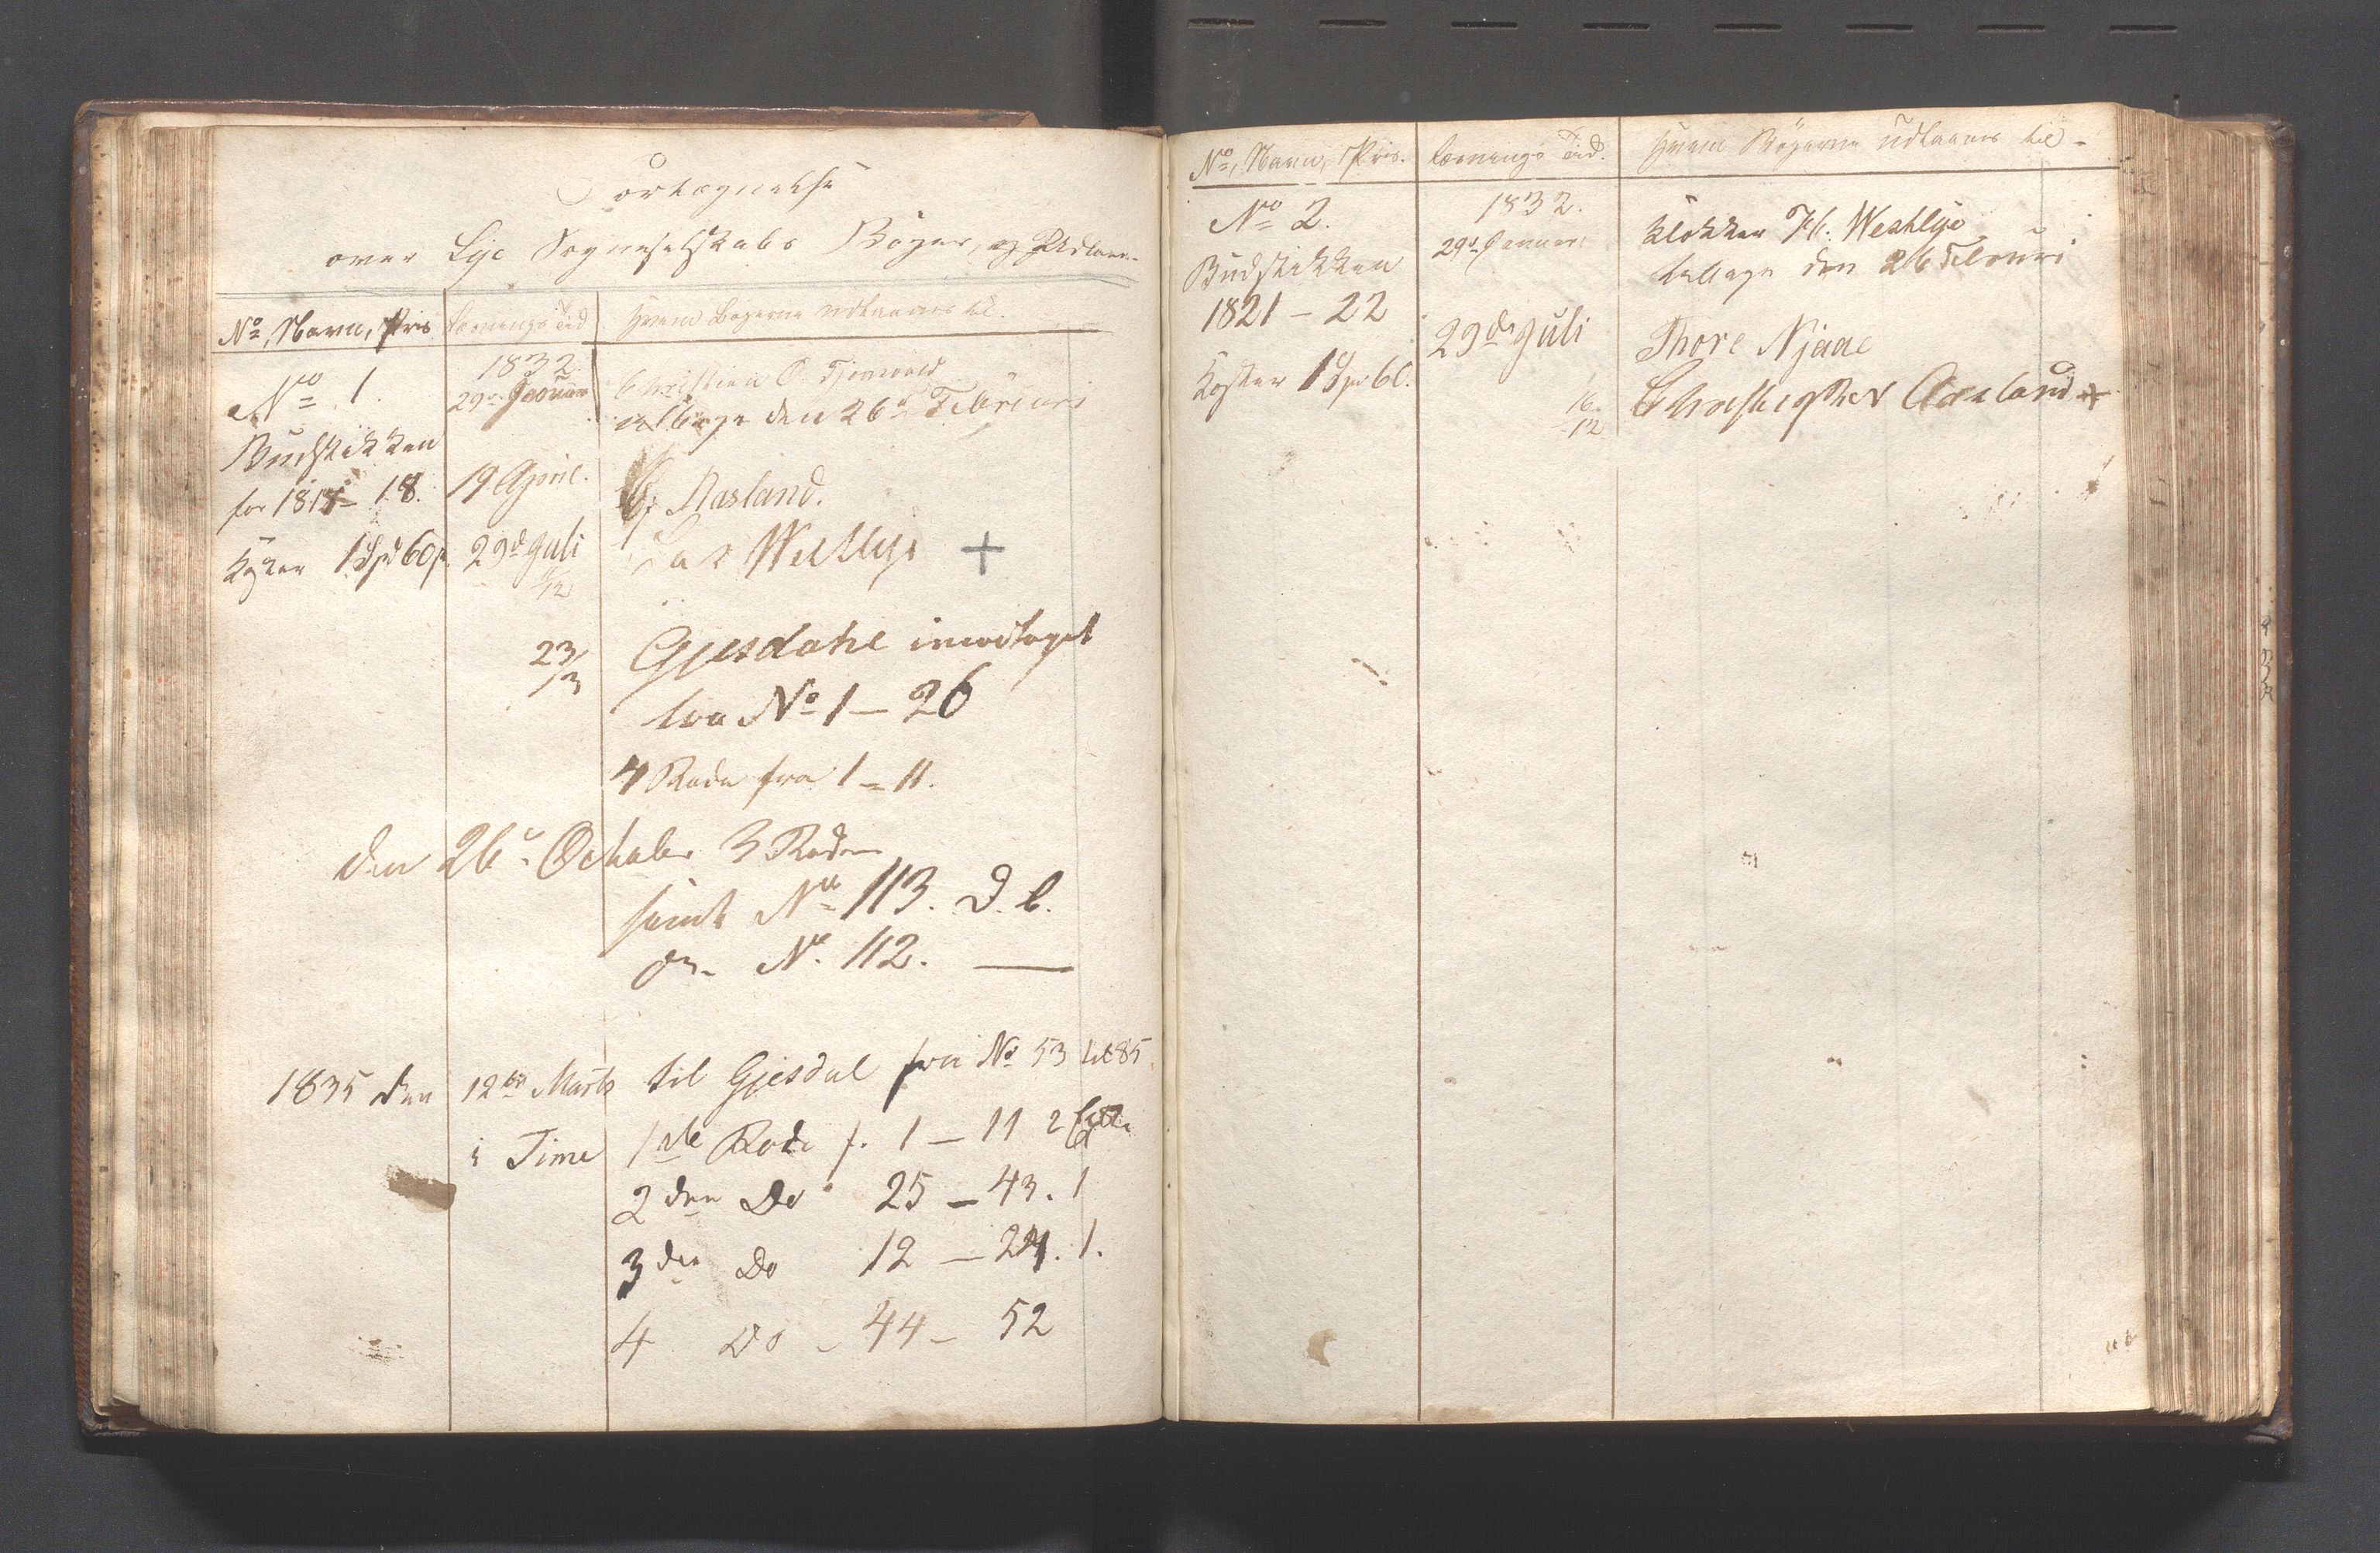 Fortegnelse
over Lye Sogneselskabs Bøger, og Udlaan
No, Navn, Pris
Læsnings Tid
Hvem Bøgerne udlaanes til.
No 1.
Budstikken
for 1817 - 18.
Koster 1 Spd 60 s
1832.
29de Januar
Christian O.
tilbage den 26de Februari
19 April.
Aasland.
29de Juli
Westlye +
/12
23/3
Gjesdahl imodtaget
fra No 1 - 26
4 Rode fra 1 - 11.
den 26de October 3 Roder
samt No 113. D. b.
og No. 112. —
1835 den 12te Marts til Gjesdal fra No 53 til 85.
i Time 1ste Rode f. 1 - 11 2
2den Do 25 - 43. 1
3die Do 12 - 24. 1.
4 Do - 44 - 52
No, Navn, Pris.
Læsnings Tid.
Hvem Bøgerne Udlaanes til -
No 2.
Budstikken
1821 - 22
Koster 1 Spd 60.
1832.
29de Januari
Klokker Westlye
tilbage den 26 Februari
29de Juli
Thore Njaae
16/12
Aasland +